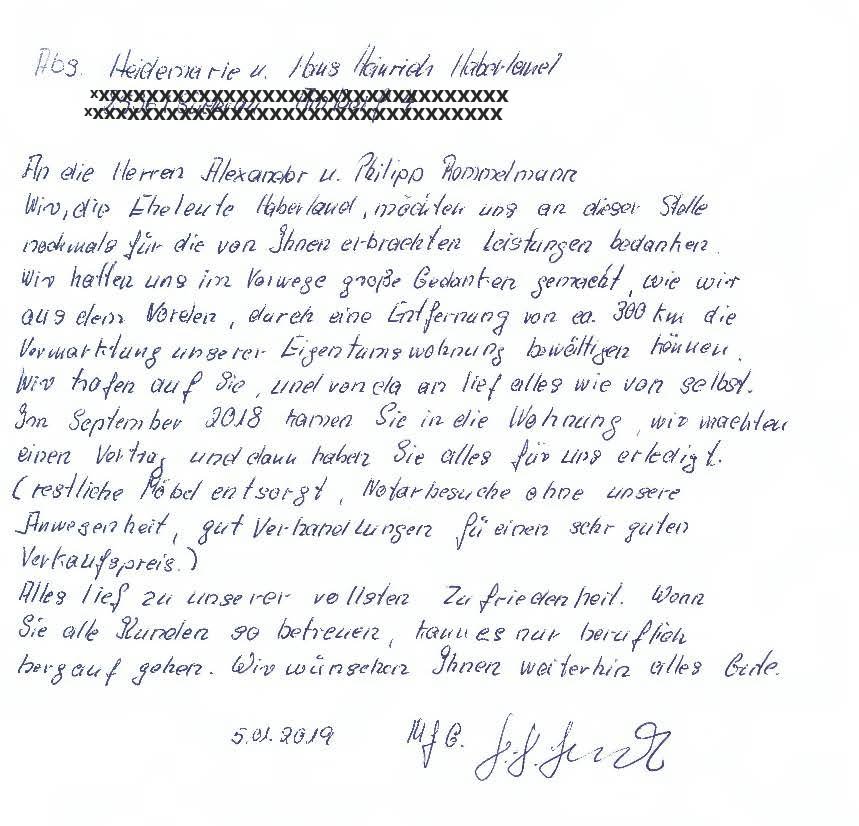 Abs. Heidemarie u. Hans Heinrich Haberland
xxxxxxxxxxxxxxxxxxxxxxxxxxxxxxxxxxx
xxxxxxxxxxxxxxxxxxxxxxxxxxxxxxxxxxx
An die Herren Alexander u. Philipp Rommelmann
Wir, die Eheleute Haberland, möchten uns an dieser Stelle
nochmals für die von Ihnen erbrachten Leistungen bedanken.
Wir hatten uns im Vorwege große Gedanken gemacht, wie wir
aus dem Norden, durch eine Entfernung von ca. 300 km die
Vermarktung unserer Eigentumswohnung bewältigen können.
Wir trafen auf Sie, und von da an lief alles wie von selbst.
Im September 2018 kamen Sie in die Wohnung, wir machten
einen Vertrag und dann haben Sie alles für uns erledigt.
(restliche Möbel entsorgt, Notarbesuche ohne unsere
Anwesenheit, gut Verhandlungen für einen sehr guten
Verkaufspreis.)
Alles lief zu unserer vollsten Zufriedenheit. Wenn
Sie alle Kunden so betreuen, kann es nur beruflich
bergauf gehen. Wir wünschen Ihnen weiterhin alles Gute.
5.01.2019 MfG.